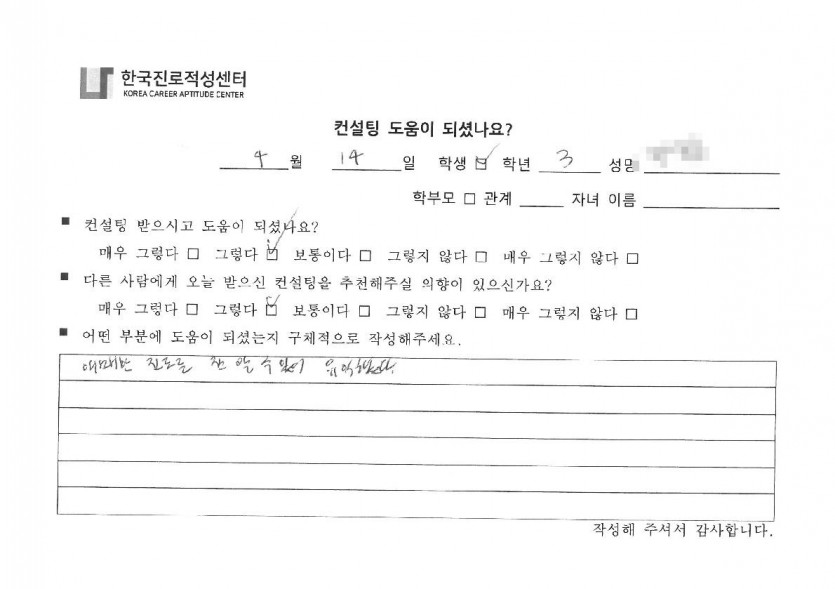 한국진로적성센터
KOREA CAREER APTITUDE CENTER
컨설팅 도움이 되셨나요?
4 월 14 일 학생 ☑ 학년 3 성명
학부모 □ 관계 자녀 이름
■ 컨설팅 받으시고 도움이 되셨나요?
매우 그렇다 □ 그렇다 ☑ 보통이다 □ 그렇지 않다 □ 매우 그렇지 않다 □
■ 다른 사람에게 오늘 받으신 컨설팅을 추천해주실 의향이 있으신가요?
매우 그렇다 □ 그렇다 ☑ 보통이다 □ 그렇지 않다 □ 매우 그렇지 않다 □
■ 어떤 부분에 도움이 되셨는지 구체적으로 작성해주세요.
진로를 잘 알 수 있어 유익했다.
작성해 주셔서 감사합니다.